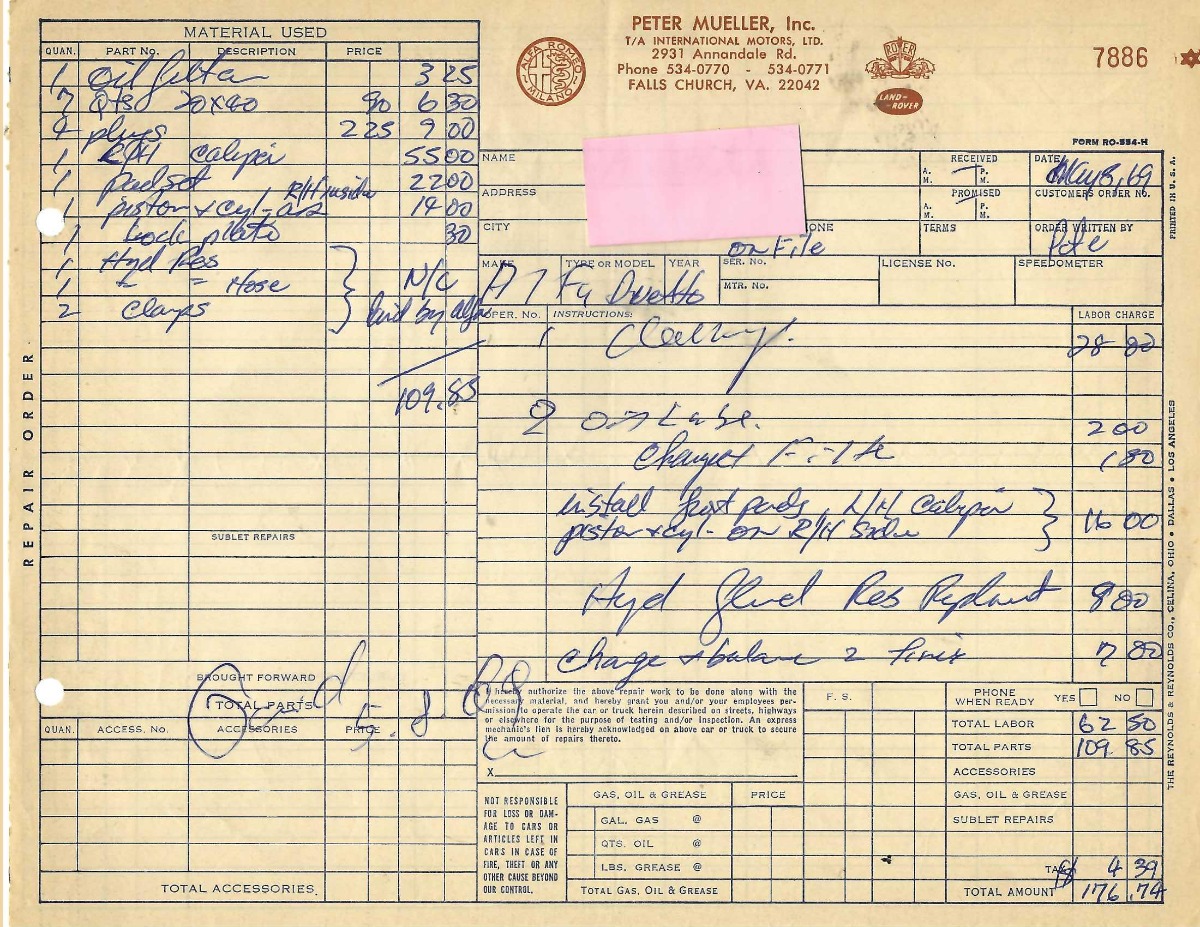 PETER MUELLER, Inc.
T/A INTERNATIONAL MOTORS, LTD.
2931 Annandale Rd.
Phone 534-0770 - 534-0771
FALLS CHURCH, VA. 22042
ALFA ROMEO
MILANO
ROVER
LAND-ROVER
7886
FORM RO-554-H
REPAIR ORDER
MATERIAL USED
QUAN. PART No. DESCRIPTION PRICE
1 Oil filter 3 25
7 Qts 20x40 90 6 30
4 plugs 2 25 9 00
1 R/H Caliper 55 00
1 pad set 22 00
1 piston + cyl- R/H inside 14 00
1 Lock plate 30
1 Hyd Res
1 " " Hose N/C
2 Clamps by alfa
109.85
SUBLET REPAIRS
BROUGHT FORWARD
TOTAL PARTS
Paid 5. 8. 69
QUAN. ACCESS. No. ACCESSORIES PRICE
TOTAL ACCESSORIES
NAME
ADDRESS
CITY PHONE
on File
RECEIVED A.M. P.M.
PROMISED A.M. P.M.
TERMS
DATE May 8, 69
CUSTOMERS ORDER NO.
ORDER WRITTEN BY Pete
MAKE A TYPE OR MODEL YEAR SER. No. LICENSE No. SPEEDOMETER
Duetto
MTR. No.
OPER. No. INSTRUCTIONS: LABOR CHARGE
1 28 80
2 Oil Lube. 2 00
Change Filte 1 80
install front pads, R/H Caliper
piston + cyl- on R/H Side 16 00
Hyd fluid Res Replaced 8 00
Change + balance 2 Tires 7 80
I hereby authorize the above repair work to be done along with the
necessary material, and hereby grant you and/or your employees per-
mission to operate the car or truck herein described on streets, highways
or elsewhere for the purpose of testing and/or inspection. An express
mechanic's lien is hereby acknowledged on above car or truck to secure
the amount of repairs thereto.
X
F. S.
PHONE WHEN READY YES NO
TOTAL LABOR 62 50
TOTAL PARTS 109.85
ACCESSORIES
GAS, OIL & GREASE
SUBLET REPAIRS
TAX 4 39
TOTAL AMOUNT 176.74
NOT RESPONSIBLE
FOR LOSS OR DAM-
AGE TO CARS OR
ARTICLES LEFT IN
CARS IN CASE OF
FIRE, THEFT OR ANY
OTHER CAUSE BEYOND
OUR CONTROL.
GAS, OIL & GREASE PRICE
GAL. GAS @
QTS. OIL @
LBS. GREASE @
TOTAL GAS, OIL & GREASE
PRINTED IN U.S.A.
THE REYNOLDS & REYNOLDS CO., CELINA, OHIO • DALLAS • LOS ANGELES